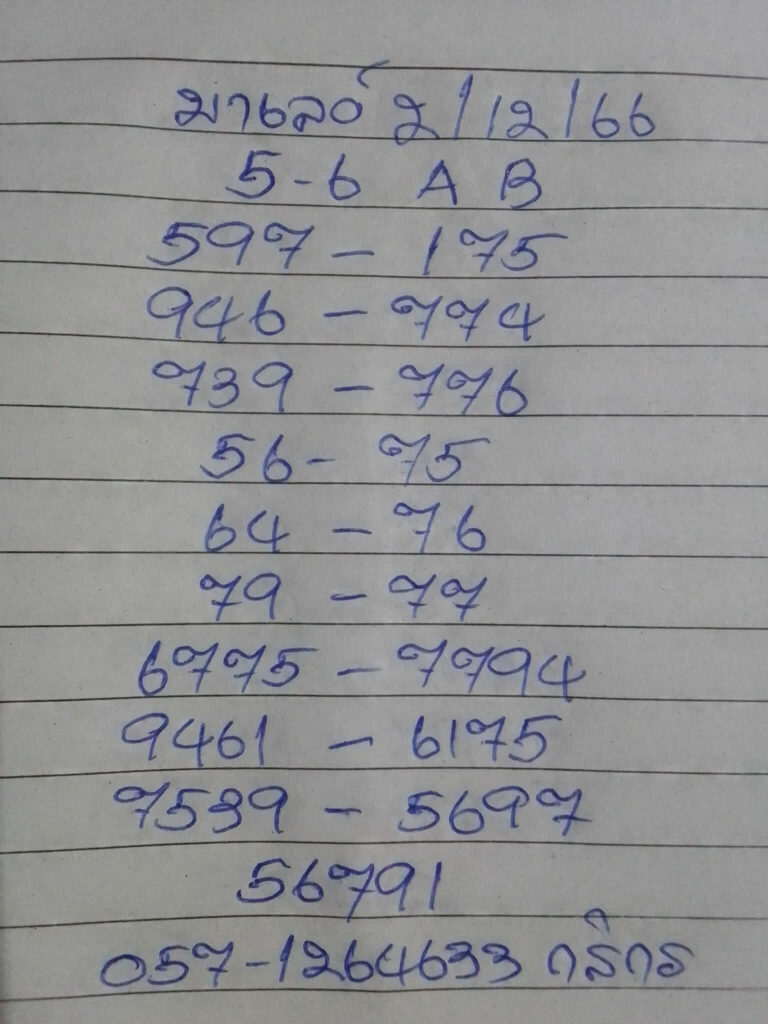 มาเลย์ 2/12/66
5-6 A B
597 - 175
946 - 774
739 - 776
56 - 75
64 - 76
79 - 77
6775 - 7794
9461 - 6175
7539 - 5697
56791
057-1264633 กสิกร